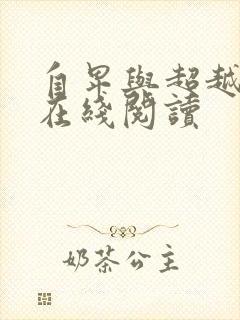 自卑與超越
在綫閱讀
奶茶公主